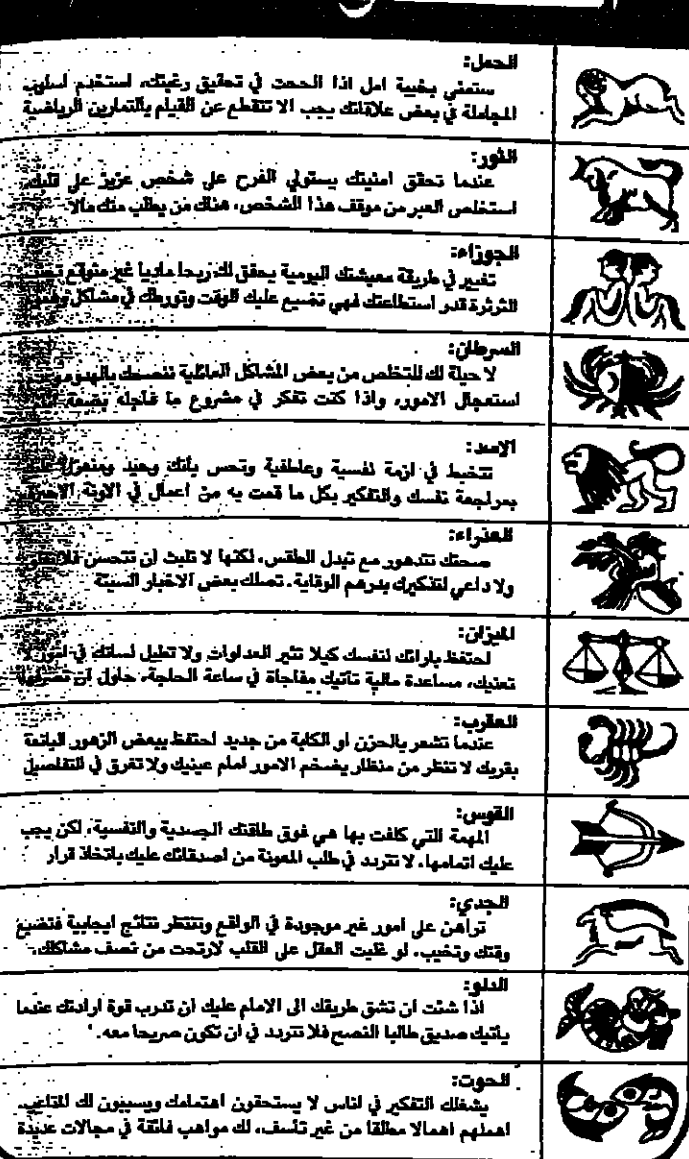 الحمل:
ستمنى بخيبة امل اذا الححت في تحقيق رغبتك، استخدم اسلوب
المجاملة في بعض علاقاتك يجب الا تنقطع عن القيام بالتمارين الرياضية
الثور:
عندما تحقق امنيتك يستولي الفرح على شخص عزيز على قلبك
استخلص العبر من موقف هذا الشخص، هناك من يطلب منك مالا
الجوزاء:
تغيير في طريقة معيشتك اليومية يحقق لك ربحا ماديا غير متوقع
الثرثرة قدر استطاعتك فهي تضيع عليك الوقت وتورطك في مشاكل
السرطان:
لا حيلة لك للتخلص من بعض المشاكل العائلية ننصحك بالهدوء
استعجال الامور، واذا كنت تفكر في مشروع ما فاجله بضعة
الاسد:
تتخبط في ازمة نفسية وعاطفية وتحس بأنك وحيد ومنعزل
بمراجعة نفسك والتفكير بكل ما قمت به من اعمال في الاونة الاخيرة
العذراء:
صحتك تتدهور مع تبدل الطقس، لكنها لا تلبث ان تتحسن فلا
ولا داعي لتذكيرك بدرهم الوقاية. تصلك بعض الاخبار السيئة
الميزان:
احتفظ بارائك لنفسك كيلا تثير العداوات ولا تطيل لسانك في امور
تعنيك، مساعدة مالية تأتيك مفاجأة في ساعة الحاجة، حاول ان
العقرب:
عندما تشعر بالحزن او الكآبة من جديد احتفظ ببعض الزهور اليانعة
بقربك لا تنظر من منظار يضخم الامور امام عينيك ولا تغرق في التفاصيل
القوس:
المهمة التي كلفت بها هي فوق طاقتك الجسدية والنفسية، لكن يجب
عليك اتمامها، لا تتردد في طلب المعونة من اصدقائك عليك باتخاذ قرار
الجدي:
تراهن على امور غير موجودة في الواقع وتنتظر نتائج ايجابية فتضيع
وقتك وتخيب، لو غلبت العقل على القلب لارتحت من نصف مشاكلك
الدلو:
اذا شئت ان تشق طريقك الى الامام عليك ان تدرب قوة ارادتك عندما
يأتيك صديق طالبا النصح فلا تتردد في ان تكون صريحا معه.
الحوت:
يشغلك التفكير في اناس لا يستحقون اهتمامك ويسببون لك المتاعب
اهملهم اهمالا مطلقا من غير تأسف، لك مواهب فائقة في مجالات عديدة